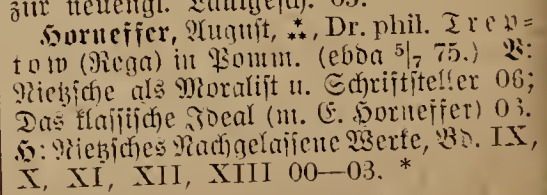 zur neuengl. Lautgesch. 05.
Horneffer, August, ⁂, Dr. phil. Trep=
tow (Rega) in Pomm. (ebda 5/7 75.) V:
Nietzsche als Moralist u. Schriftsteller 06;
Das klassische Ideal (m. E. Horneffer) 03.
H: Nietzsches Nachgelassene Werke, Bd. IX,
X, XI, XII, XIII 00—03. *